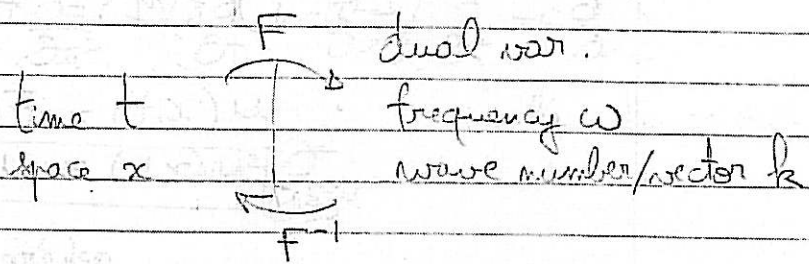 F dual var.
time t frequency ω
space x wave number/vector k
F⁻¹